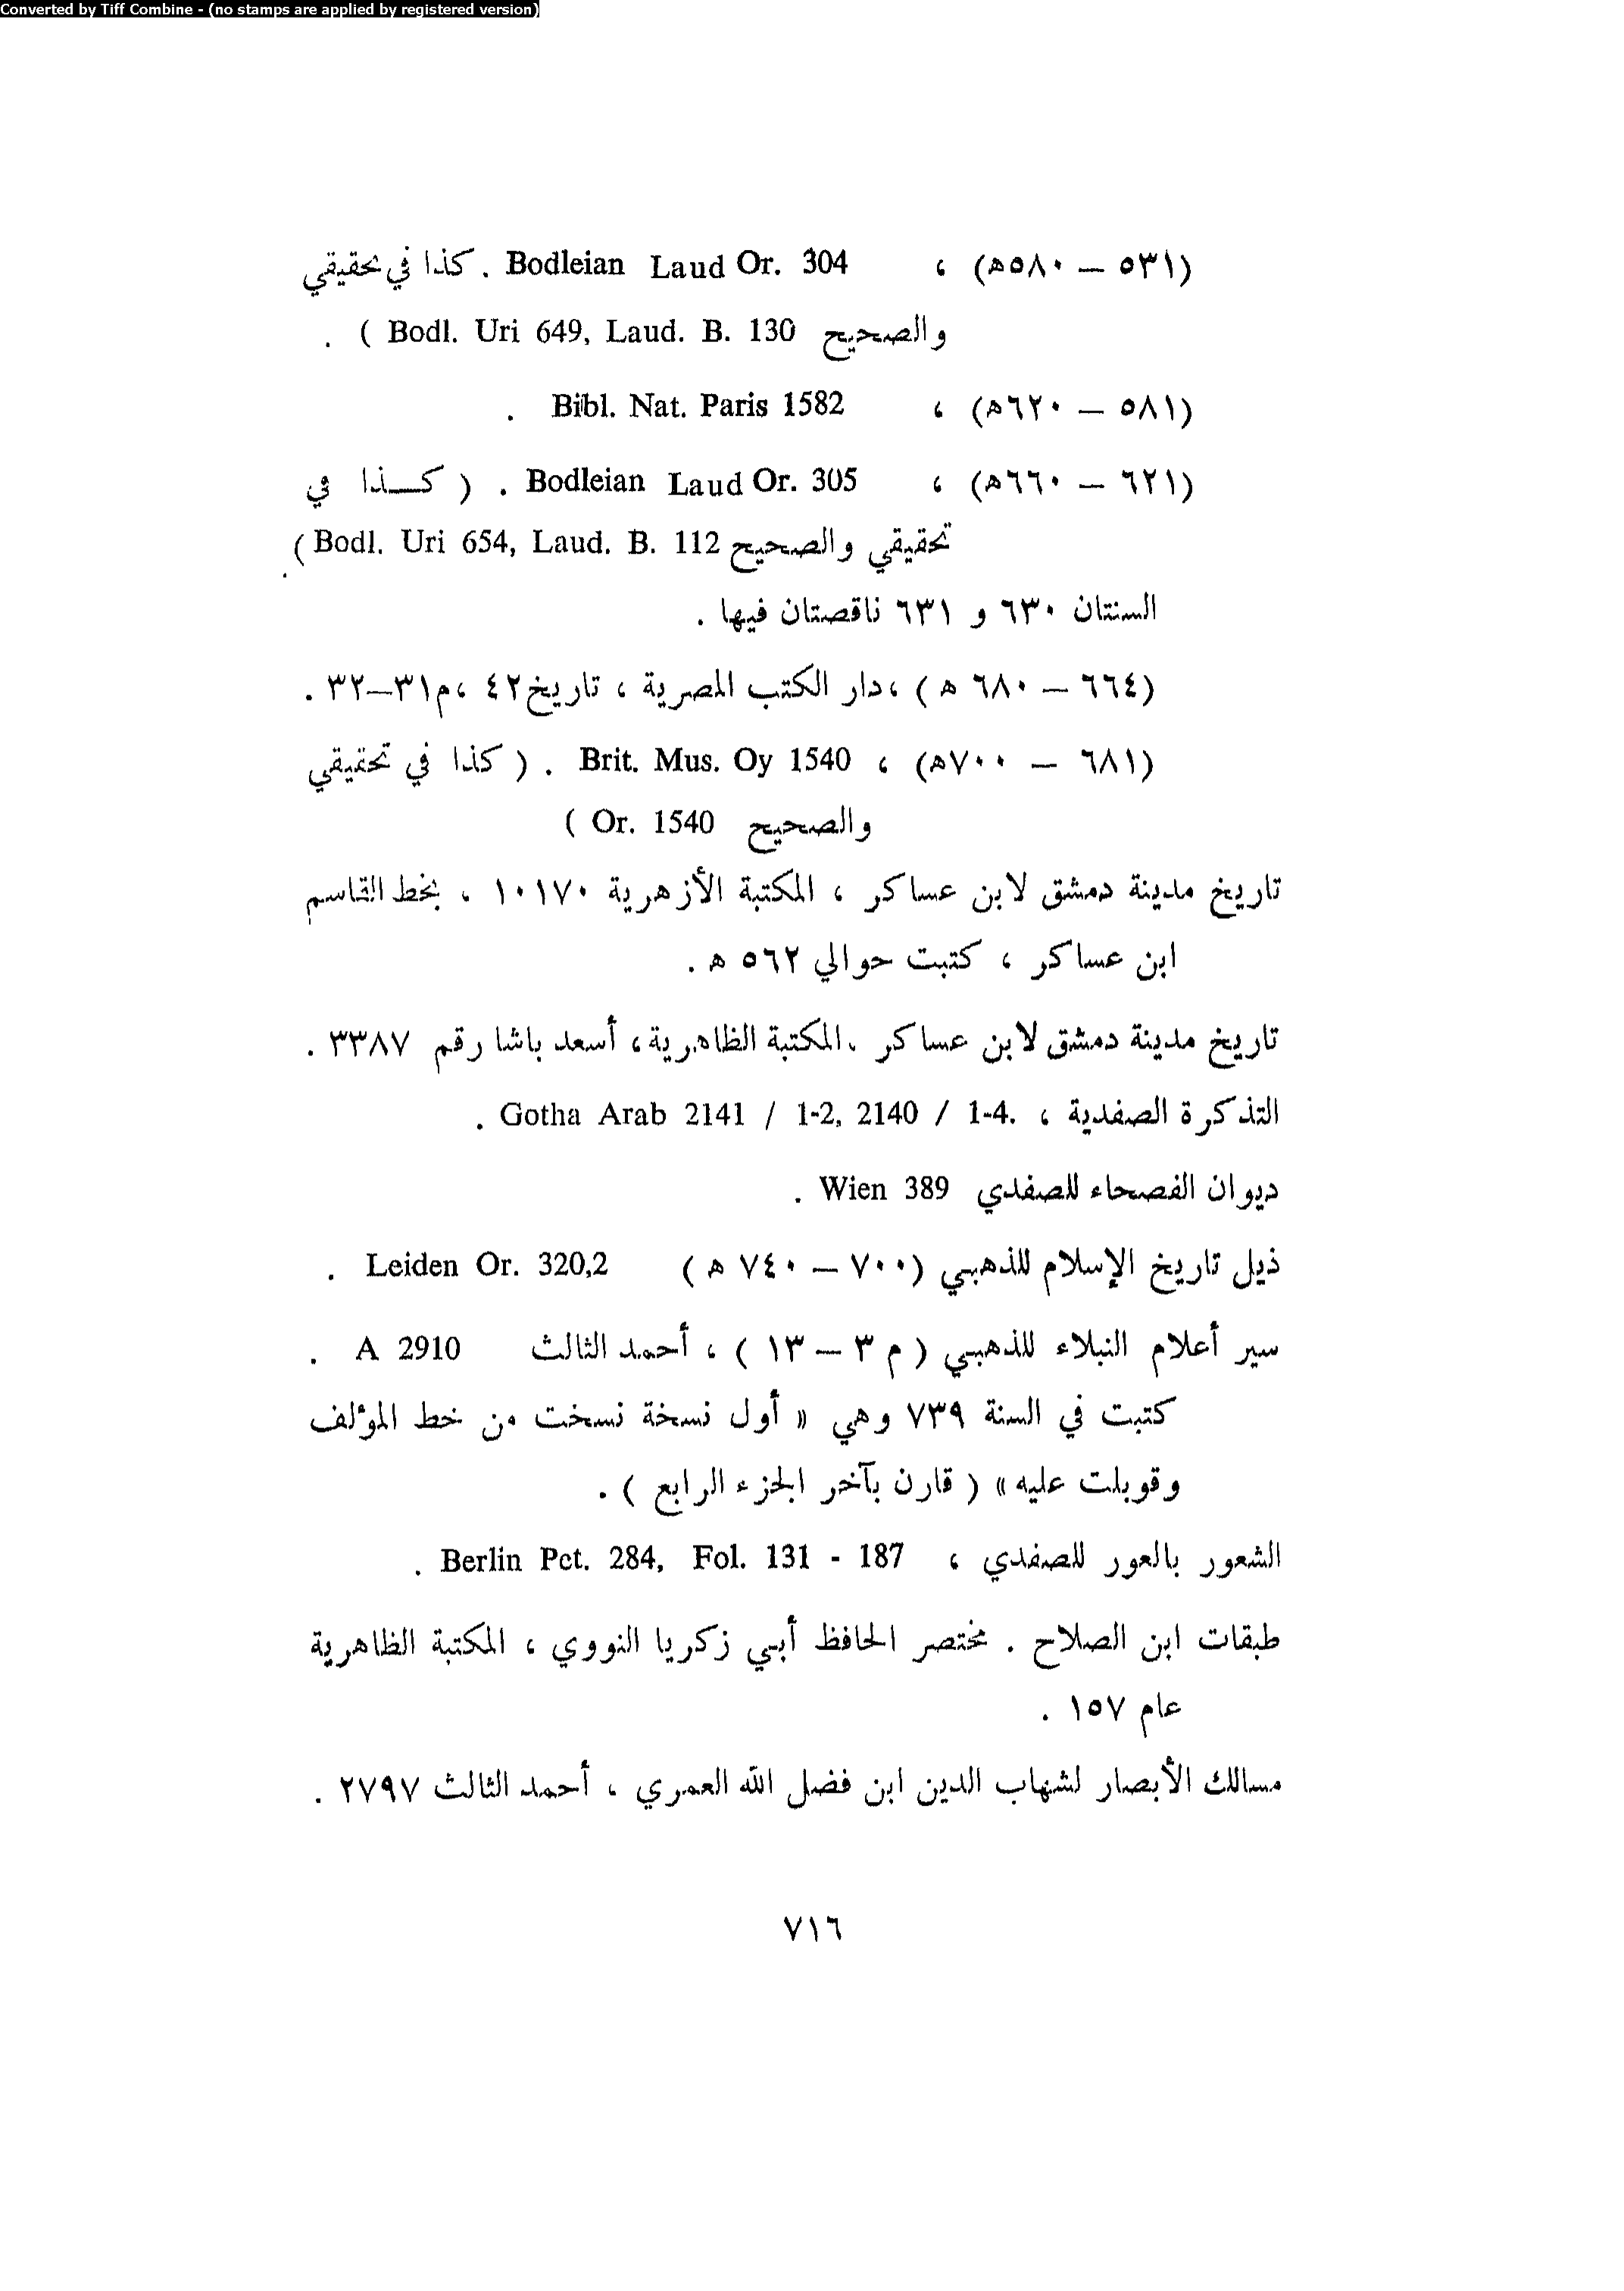 Converted by Tiff Combine - (no stamps are applied by registered version)
(٥٣١ – ٥٨٠ه) ، Bodleian Laud Or. 304 . كذا في تحقيقي
والصحيح Bodl. Uri 649, Laud. B. 130 ) .
(٥٨١ – ٦٢٠ه) ، Bibl. Nat. Paris 1582 .
(٦٢١ – ٦٦٠ه) ، Bodleian Laud Or. 305 . ( كـــذا في
تحقيقي والصحيح Bodl. Uri 654, Laud. B. 112 ) .
السنتان ٦٣٠ و ٦٣١ ناقصتان فيها .
(٦٦٤ – ٦٨٠ ه ) ،دار الكتب المصرية ، تاريخ٤٢ ،م٣١–٣٢ .
(٦٨١ – ٧٠٠ه) ، Brit. Mus. Oy 1540 . ( كذا في تحقيقي
والصحيح Or. 1540 )
تاريخ مدينة دمشق لابن عساكر ، المكتبة الأزهرية ١٠١٧٠ ، بخط القاسم
ابن عساكر ، كتبت حوالي ٥٦٢ ه .
تاريخ مدينة دمشق لابن عساكر .المكتبة الظاهرية، أسعد باشا رقم ٣٣٨٧ .
التذكرة الصفدية ، Gotha Arab 2141 / 1-2, 2140 / 1-4. .
ديوان الفصحاء للصفدي Wien 389 .
ذيل تاريخ الإسلام للذهبي (٧٠٠ – ٧٤٠ ه ) Leiden Or. 320,2 .
سير أعلام النبلاء للذهبي ( م ٣ – ١٣ ) ، أحمد الثالث A 2910 .
كتبت في السنة ٧٣٩ وهي « أول نسخة نسخت من خط المؤلف
وقوبلت عليه » ( قارن بآخر الجزء الرابع ) .
الشعور بالعور للصفدي ، Berlin Pct. 284, Fol. 131 - 187 .
طبقات ابن الصلاح . مختصر الحافظ أبي زكريا النووي ، المكتبة الظاهرية
عام ١٥٧ .
مسالك الأبصار لشهاب الدين ابن فضل الله العمري ، أحمد الثالث ٢٧٩٧ .
٧١٦